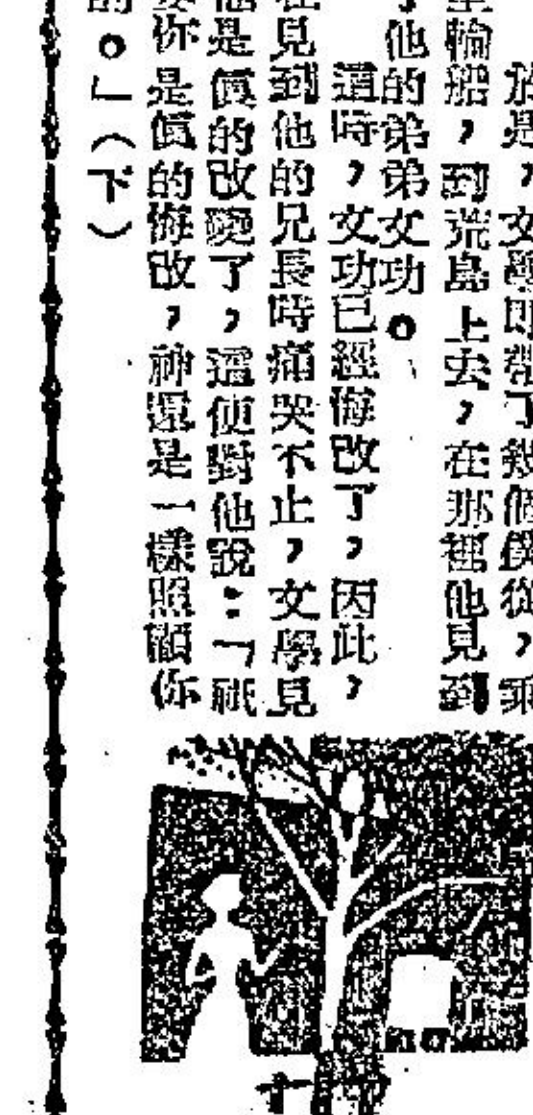 於是，文學即帶了幾個僕從，乘
輪船，到荒島上去，在那裡他見到
他的弟弟文功。
這時，文功已經悔改了，因此，
在見到他的兄長時痛哭不止，文學見
他是眞的改變了，這便對他說：「祇
要你是眞的悔改，神還是一樣照顧你
的。」（下）